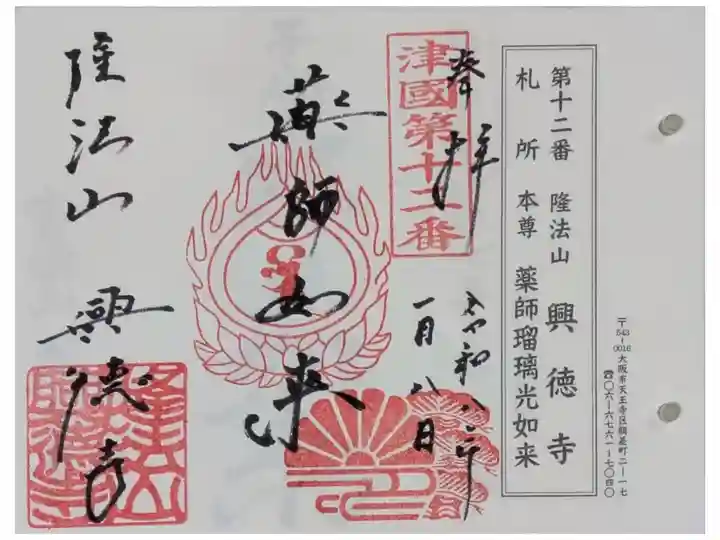 第十二番 隆法山 興徳寺
札所 本尊 薬師瑠璃光如来
〒543-0016 大阪市天王寺区餌差町二ー一七
☎〇六ー六七六一ー七〇四〇
奉拝
津國第十二番
令和八年
一月八日
薬師如来
隆法山 興徳寺